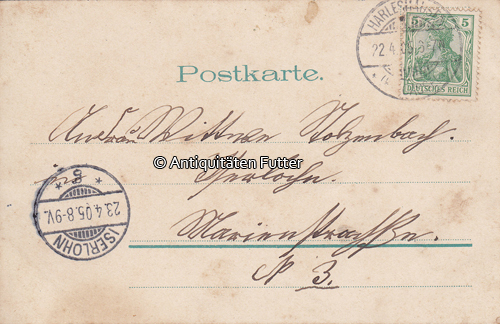 HARLES
22.4.05.
5 5
DEUTSCHES REICH
Postkarte.
An Frau Wittwe Stolzenbach.
© Antiquitäten Futter
Iserlohn.
23.4.05.8-9V.
ISERLOHN
Marienstraße.
N 3.